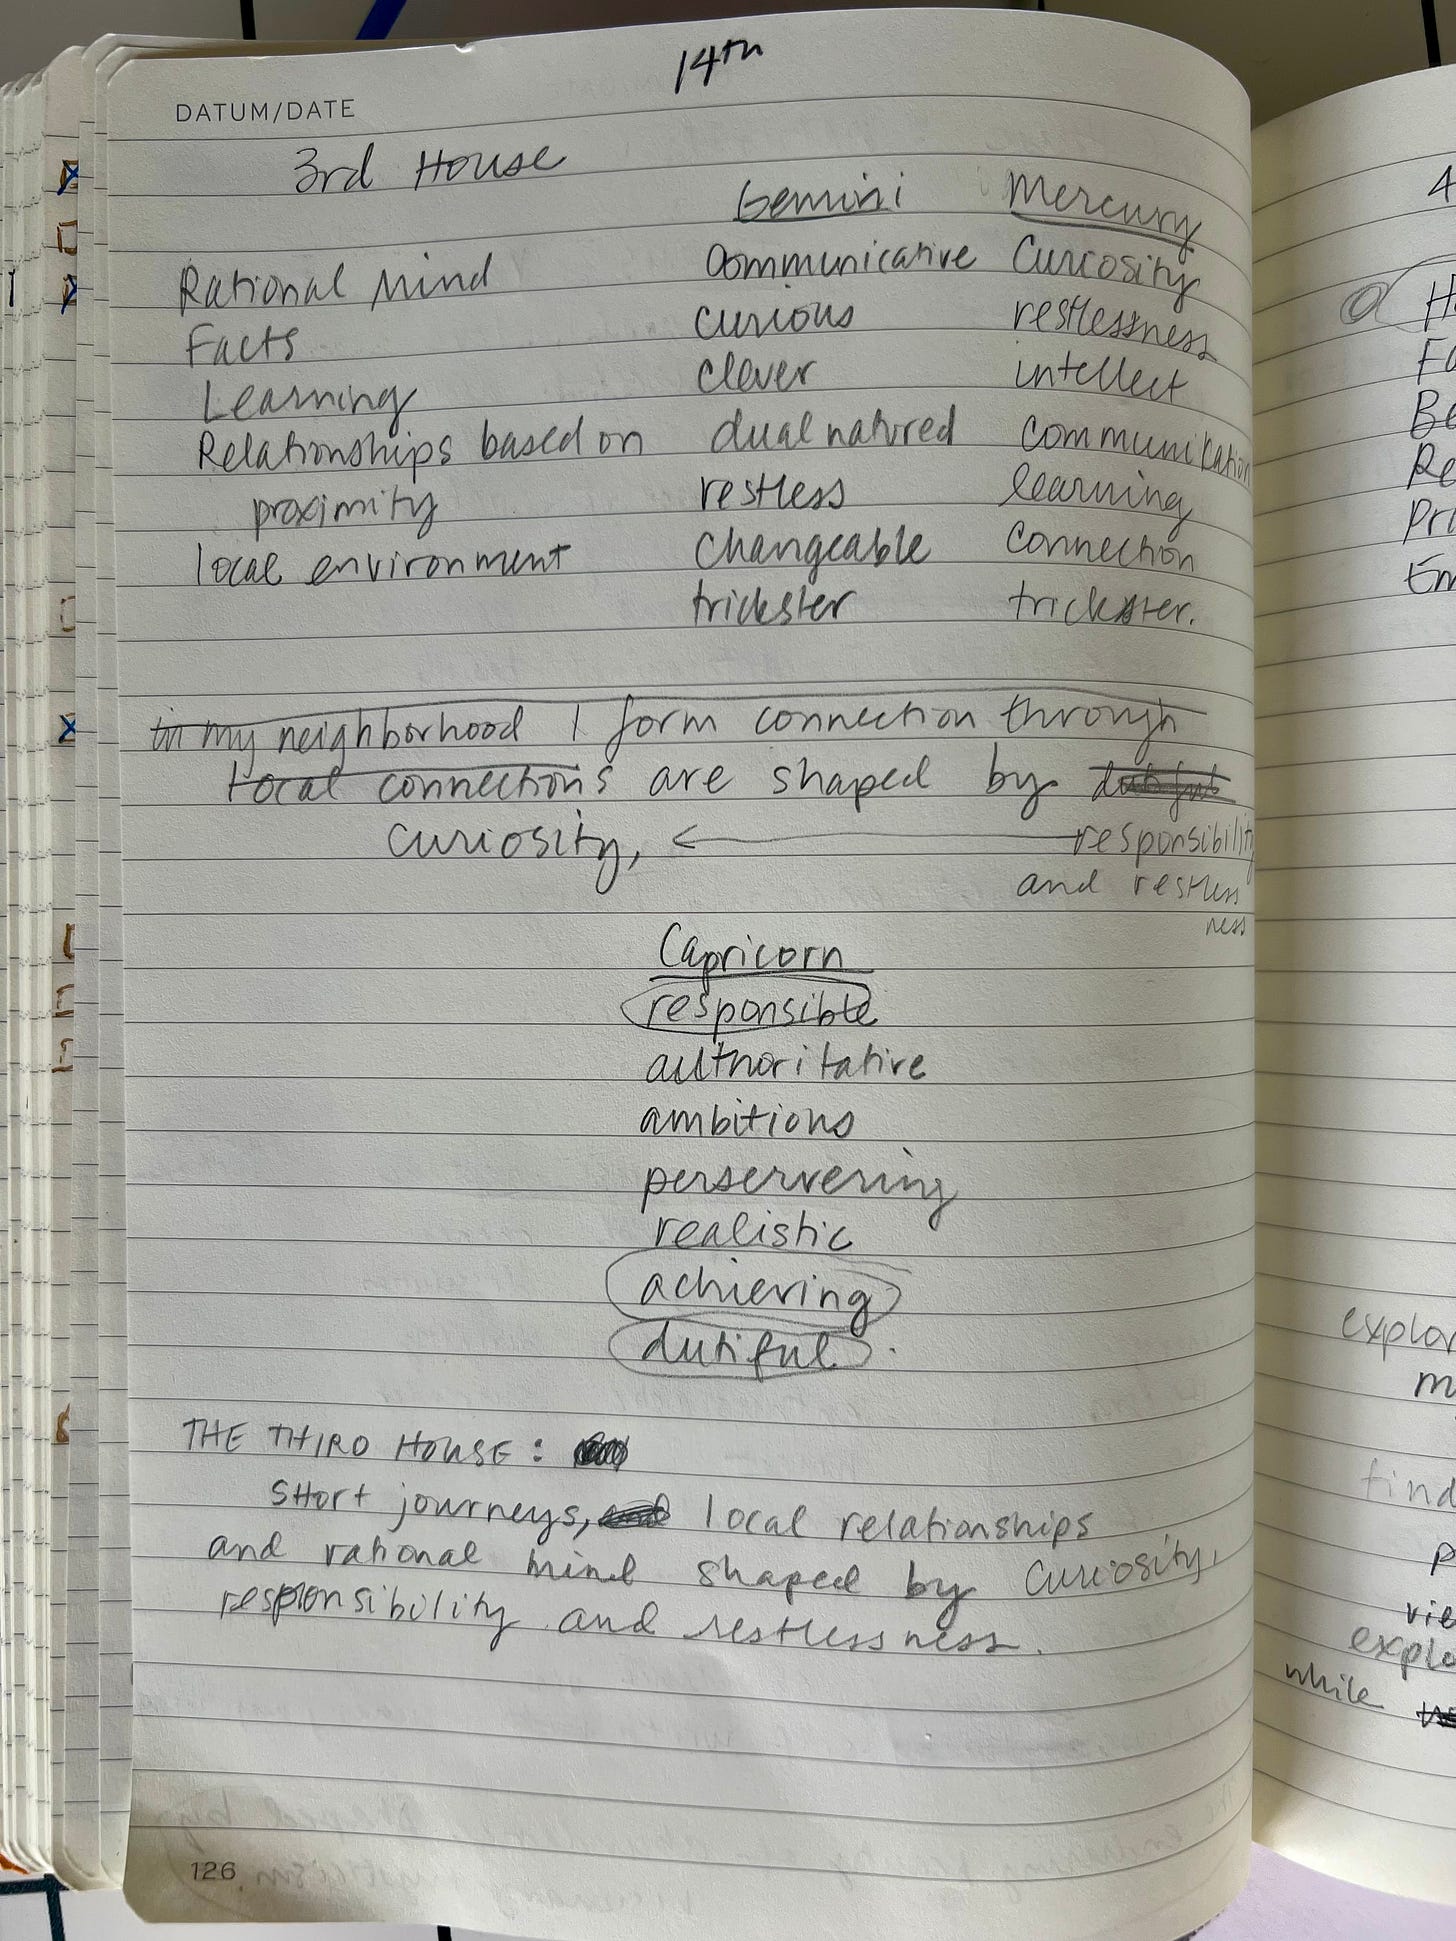 14th
DATUM/DATE
3rd House
Gemini Mercury
Rational Mind communicative Curiosity
Facts curious restlessness
Learning clever intellect
Relationships based on dual natured communikation
proximity restless learning
local environment changeable connection
trickster trickster.
in my neighborhood I form connection through
local connections are shaped by dutiful
curiosity, ← responsibility
and restless
ness
Capricorn
responsible
authoritative
ambitious
perservering
realistic
achieving
dutiful.
THE THIRD HOUSE:
Short journeys, local relationships
and rational mind shaped by Curiosity,
responsibility and restlessness.
126
4
H
Fa
Be
Re
Pri
Em
explor
m
find
P
vie
explo
while